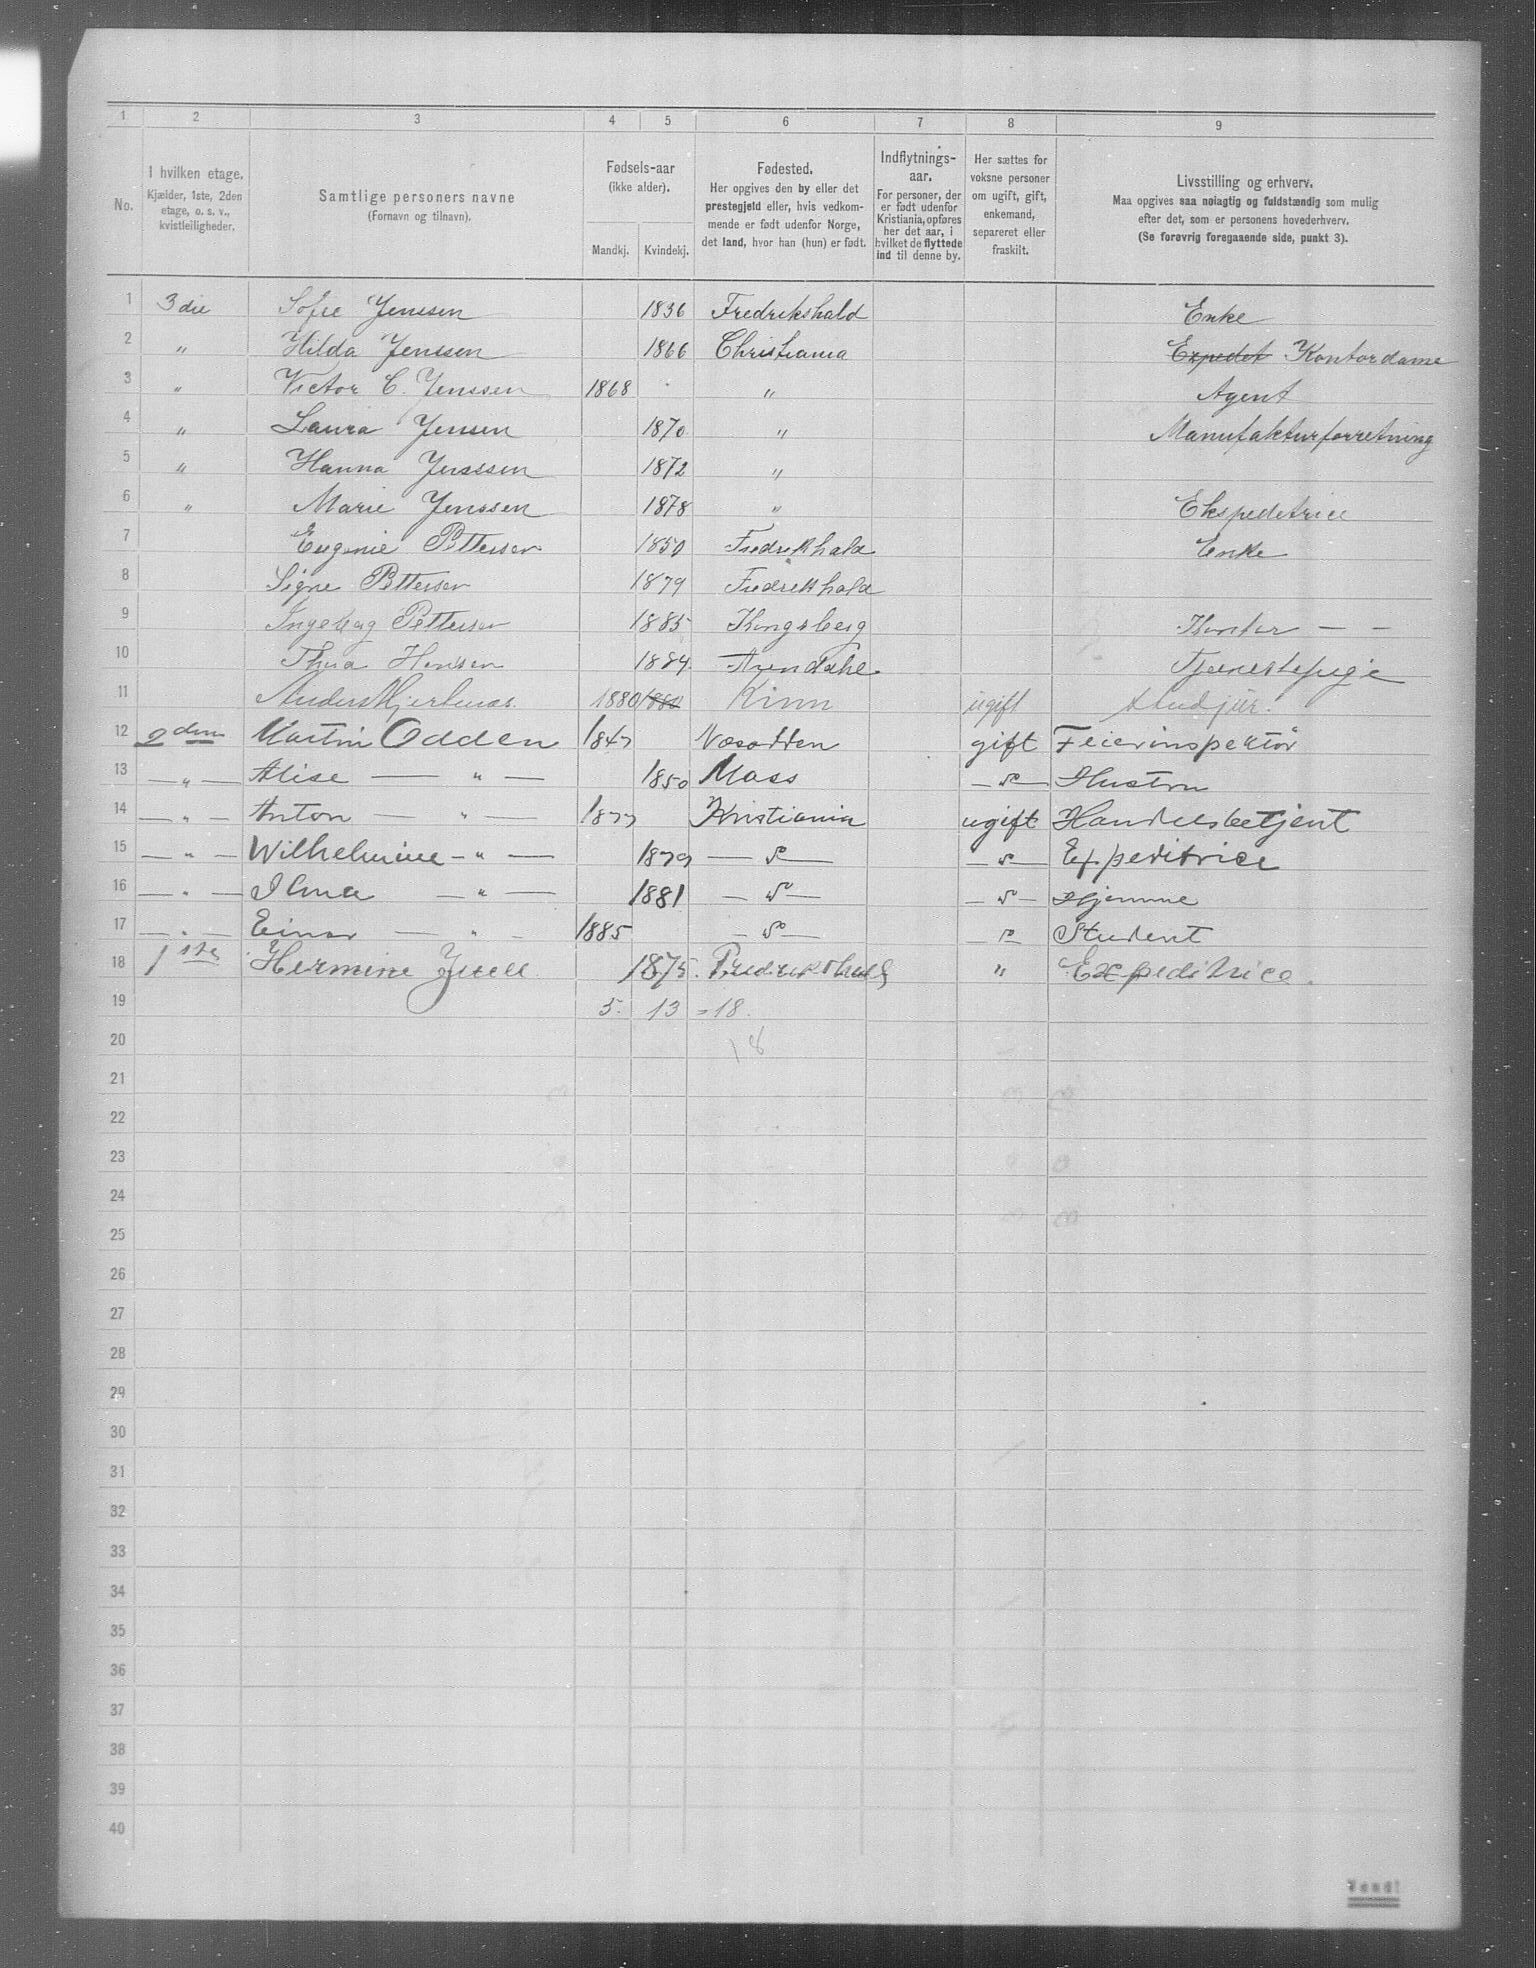 1 2 3 4 5 6 7 8 9
No.
I hvilken etage.
Kjælder, 1ste, 2den
etage, o. s. v.,
kvistleiligheder.
Samtlige personers navne
(Fornavn og tilnavn).
Fødsels-aar
(ikke alder).
Mandkj. Kvindekj.
Fødested.
Her opgives den by eller det
prestegjeld eller, hvis vedkom-
mende er født udenfor Norge,
det land, hvor han (hun) er født.
Indflytnings-
aar.
For personer, der
er født udenfor
Kristiania, opføres
her det aar, i
hvilket de flyttede
ind til denne by.
Her sættes for
voksne personer
om ugift, gift,
enkemand,
separeret eller
fraskilt.
Livsstilling og erhverv.
Maa opgives saa nøiagtig og fuldstændig som mulig
efter det, som er personens hovederhverv.
(Se forøvrig foregaaende side, punkt 3).
1 3die Sofie Jenssen 1836 Fredrikshald Enke
2 " Hilda Jenssen 1866 Christiania Expedet Kontordame
3 " Victor C. Jenssen 1868 " Agent
4 " Laura Jensen 1870 " Manufakturforretning
5 " Hanna Jenssen 1872 "
6 " Marie Jenssen 1878 " Ekspeditrice
7 Eugenie Pettersen 1850 Fredrikhald Enke
8 Signe Pettersen 1879 Fredrikhald
9 Ingeborg Pettersen 1885 Kongsberg Kontor — —
10 Thea Hansen 1884 Arendahl Tjenestepige
11 Anders 1880 1880 Kinn ugift stud jur.
12 2den Martin Odden 1847 Næsodden gift Feierinspektør
13 — " — Alise — " — 1850 Moss — " — Hustru
14 — " — Anton — " — 1877 Kristiania ugift Handelsbetjent
15 — " — Wilhelmine — " — 1879 — " — — " — Expeditrice
16 — " — Alma — " — 1881 — " — — " — Hjemme
17 — " — Einar — " — 1885 — " — — " — Student
18 1ste Hermine Juell 1875 Fredrikshald " Expeditrice.
19 5. 13 = 18.
20 18
21
22
23
24
25
26
27
28
29
30
31
32
33
34
35
36
37
38
39
40
Vend!